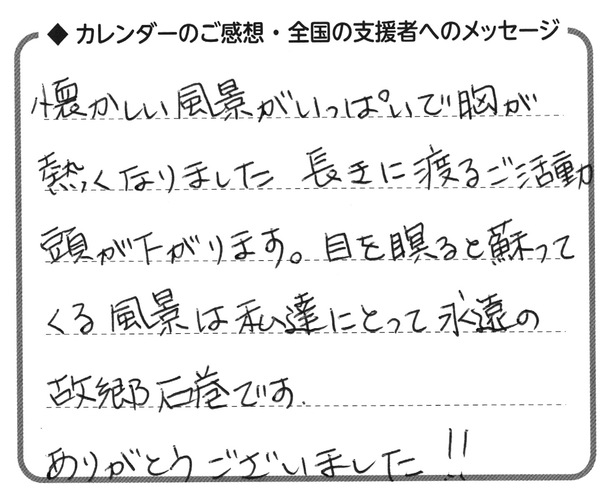 ◆ カレンダーのご感想・全国の支援者へのメッセージ
懐かしい風景がいっぱいで胸が
熱くなりました 長きに渡るご活動
頭が下がります。目を瞑ると蘇って
くる風景は私達にとって永遠の
故郷石巻です.
ありがとうございました!!